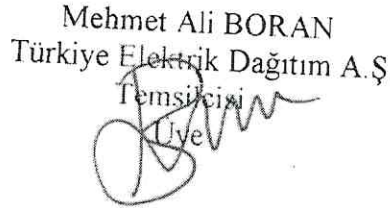 Mehmet Ali BORAN
Türkiye Elektrik Dağıtım A.Ş
Temsilcisi
Üye